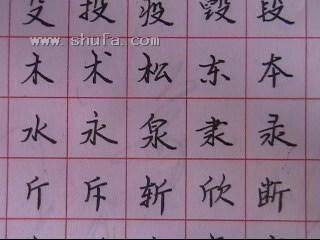 殳 投 疫 毁 段
www.shufa.com
木 术 松 东 本
水 永 泉 隶 录
斤 斥 斩 欣 断